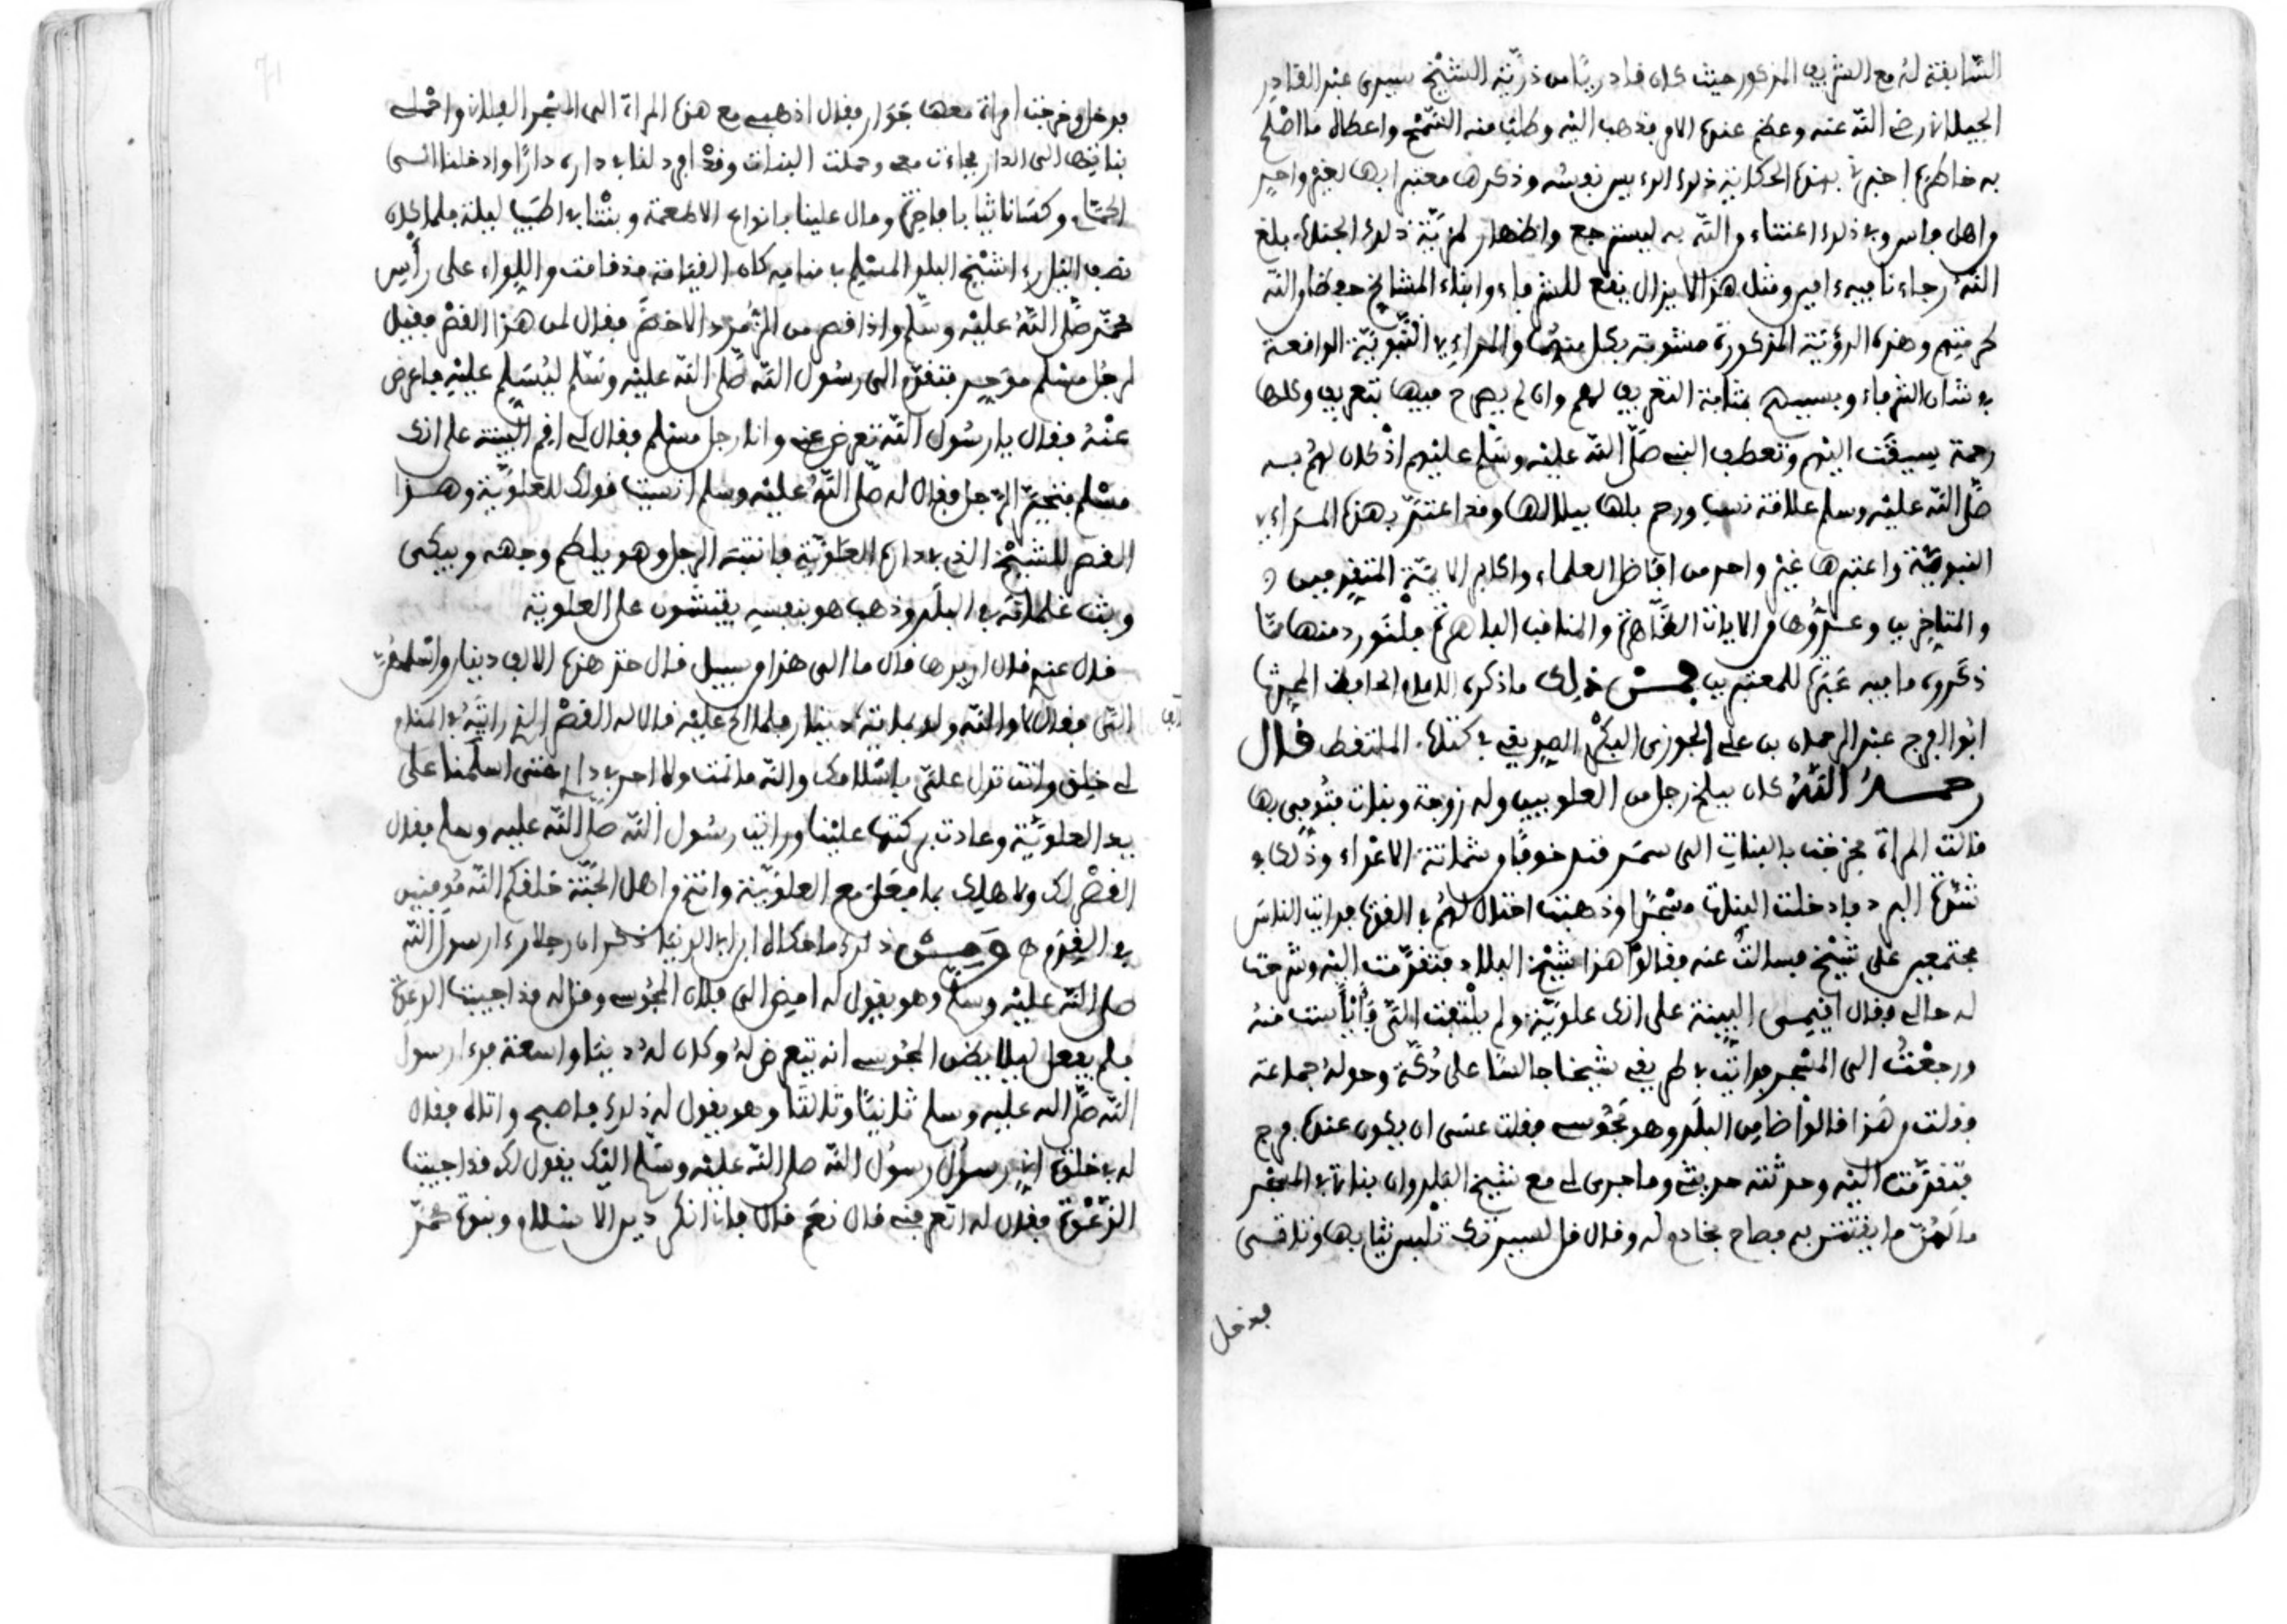 السّابقة له مع الشريف المذكور حيث كان قادريّا من ذرّيّة الشّيخ سيدى عبد القادر
الجيلانى رضى اللّه عنه وعظم عنده الامر فذهب اليه وطلب منه السّمح واعطاه ما اصلح
به خاطره اخبرنى بهذه الحكاية ذلك الرءيس نفسه وذكرها معتبرا بها لغير واحد
واهل فاس وفى ذلك اعتناء واللّه به ليسترجع واظهار لمزيّة ذلك الجناب بلغ
اللّه رجاءنا فيه ءامين ومثل هذا لا يزال يقع للشرفاء وابناء المشايخ حفظا واللّه
لحرمتهم وهذه الرؤيّة المذكورة مشوبة بكل منهما والمراءى النّبويّة الواقعة
فى شان الشرفاء وبسببهم بمثابة التعريف لهم وان لم يصرح فيها بتعريف وكلها
رحمة سيقت اليهم وتعطف النبى صلّى اللّه عليه وسلّم عليهم اذ كان لهم به
صلّى اللّه عليه وسلم علاقة نسب ورحم بلها ببلالها وقد اعتنى بهذه المراءى
النبويّة واعتبرها غير واحد من افاضل العلماء واكابر الايمّة المتقدمين و
والمتاخرين وعدّوها من الايات الظّاهرة والمناقب الباهرة فلنورد منها ممّا
ذكروه ما فيه عبرة للمعتبرين فمن ذلك ما ذكره الامام الحافظ الحجّة
ابو الفرج عبد الرحمان بن على الجوزى البكرى الصديقى فى كتابه الملتقط قال
رحمه اللّه كان ببلخ رجل من العلويين وله زوجة وبنات فتوفى بها
قالت المراة فخرجت بالبنات الى سمرقند خوفا وشماتة الاعداء وذلك فى
شدّة البرد فادخلت البنات مسجدا وذهبت احتال لهم فى القوت فرايت الناس
مجتمعين على شيخ فسالت عنه فقالوا هذا شيخ البلاد فتقدّمت اليه وشرحت
له حالى فقال اقيمى البينة على انك علويّة ولم يلتفت الىّ فأيأست منه
ورجعت الى المسجد فرايت فى طريقى شيخا جالسا على دكّة وحوله جماعة
فقلت من هذا قالوا ضامن البلد وهو مجوسى فقلت عسى ان يكون عنده فرج
فتقدّمت اليه وحدثته حديثى وما جرى لى مع شيخ البلد وان بناتى فى المسجد
ما لهنّ ما يقتتن به فصاح بخادم له وقال قل لسيدتك تلبس ثيابها وتاتى
فدخل
فدخل وخرجت امراة معها جوار فقال اذهبى مع هذه المراة الى المسجد الفلانى واحملى
بناتها الى الدار فجاءت معى وحملت البنات وقد افرد لنا فى داره دارا وادخلنا الى
الحمّام وكسانا ثيابا فاخرة ومال علينا بانواع الاطعمة وبتنا فى اطيب ليلة فلما كان
نصف اليل رءا شيخ البلد المسلم فى منامه كان القيامة قد قامت واللواء على رأس
محمّد صلّى اللّه عليه وسلّم واذا قصر من الزّمرد الاخضر فقال لمن هذا القصر فقيل
لرجل مسلم موحد فتقدّم الى رسول اللّه صلّى اللّه عليه وسلّم ليسلم عليه فاعرض
عنه فقال يا رسول اللّه تعرض عنى وانا رجل مسلم فقال لى اقم البينة على انك
مسلم فتحيّر الرّجل فقال له صلّى اللّه عليه وسلم انسيت قولك للعلويّة وهذا
القصر للشيخ الذى فى داره العلويّة فانتبه الرجل وهو يلطم وجهه ويبكى
وبث غلمانه فى البلد وذهب هو بنفسه يفتشون على العلوية
قال عندى قال اريدها قال ما الى هذا من سبيل قال خذ هذه الالف دينار واسلمهنّ
الىّ فقال لا واللّه ولو بماية الف دينار فلما الح عليه قال له القصر الذى رايته فى المنام
لى خلق وانت تدل علىّ باسلامك واللّه ما نمت ولا احد فى دارى حتى اسلمنا على
يد العلويّة وعادت بركتها علينا ورايت رسول اللّه صلّى اللّه عليه وسلم فقال
القصر لك ولاهلك بما فعلت مع العلويّة وانتم من اهل الجنّة خلقكم اللّه مؤمنين
فى القدم ومن ذلك ما حكاه ابن ابى الدنيا ذكر ان رجلا رءا رسول اللّه
صلى اللّه عليه وسلّم وهو يقول له امض الى فلان المجوسى وقل له قد اجيبت الدعوة
فلم يفعل ليلا يظن المجوسى انه تعرض له وكان له دنيا واسعة فرءا رسول
اللّه صلّى اللّه عليه وسلم ثانيا وثالثا وهو يقول له ذلك فاصبح واتاه فقال
له فى خلوة انى رسول رسول اللّه صلى اللّه عليه وسلّم اليك يقول لك قد اجيبت
الدّعوة فقال له اتعرفنى قال نعم قال فانا انكر دين الاسلام ونبوّة محمّد